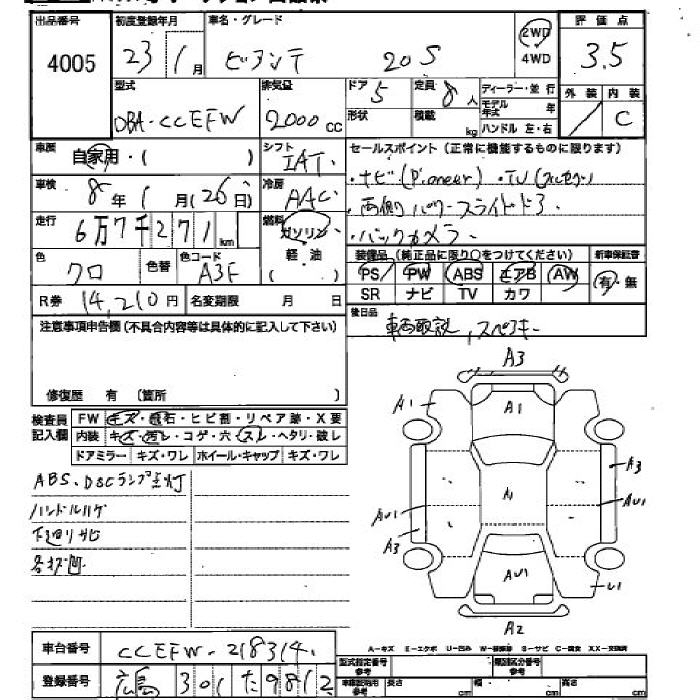 出品番号 初度登録年月 車名・グレード 評価点
4005 23 1月 ビアンテ 20S 2WD 4WD 3.5
型式 排気量 ドア 5 定員 8人 ディーラー・並行 外装 内装
形状 積載 kg モデル年式 年
DBA-CCEFW 2000cc ハンドル 左・右 C
車歴 自家用・( ) シフト IAT セールスポイント (正常に機能するものに限ります)
車検 8年1月(26日) 冷房 AAC ・ナビ(Pioneer)
走行 6万7千271km 燃料 ガソリン 軽油 ( ) ・両側パワースライドドア
・バックカメラ
色 クロ 色替 色コード A3F 装備品 (純正品に限り○をつけてください) 新車保証書
PS PW ABS エアB AW 有・無
SR ナビ TV カワ
R券 14,210円 名変期限 月 日
後日品
注意事項申告欄 (不具合内容等は具体的に記入して下さい)
修復歴 有 (箇所 )
検査員記入欄 FW キズ・飛石・ヒビ割・リペア跡・X要
内装 キズ・汚レ・コゲ・穴・スレ・ヘタリ・破レ
ドアミラー キズ・ワレ ホイール・キャップ キズ・ワレ
ABS、DSCランプ点灯
ハンドルハゲ
下廻りサビ
A3
A1 A1
A3
A1
AU1 AU1
A3
AU1 U1
A2
車台番号 CCEFW-218314
登録番号 広島 301 た 9812
A-キズ E-エクボ U-凹み S-サビ
型式指定番号 参考 類別区分番号 参考
長さ cm 幅 cm 高さ cm